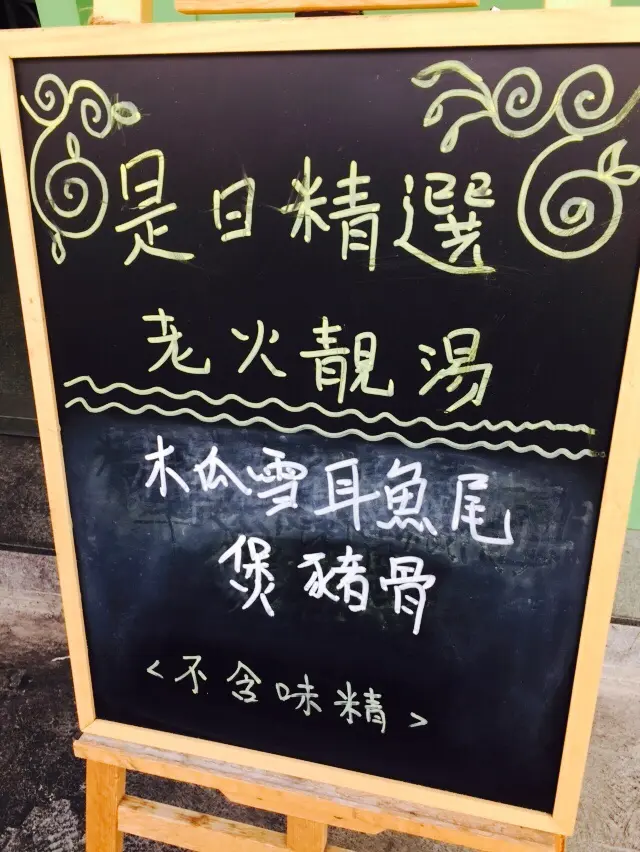 是日精選
老火靚湯
木瓜雪耳魚尾
煲豬骨
<不含味精>